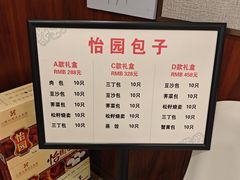 怡园包子
A款礼盒
RMB 288元
肉包 10只
豆沙包 10只
荠菜包 10只
松籽烧卖 10只
三丁包 10只
C款礼盒
RMB 328元
三丁包 10只
豆沙包 10只
荠菜包 10只
松籽烧卖 10只
蒸饺 10只
D款礼盒
RMB 458元
三丁包 10只
豆沙包 10只
荠菜包 10只
松籽烧卖 10只
蟹黄包 10只
怡园